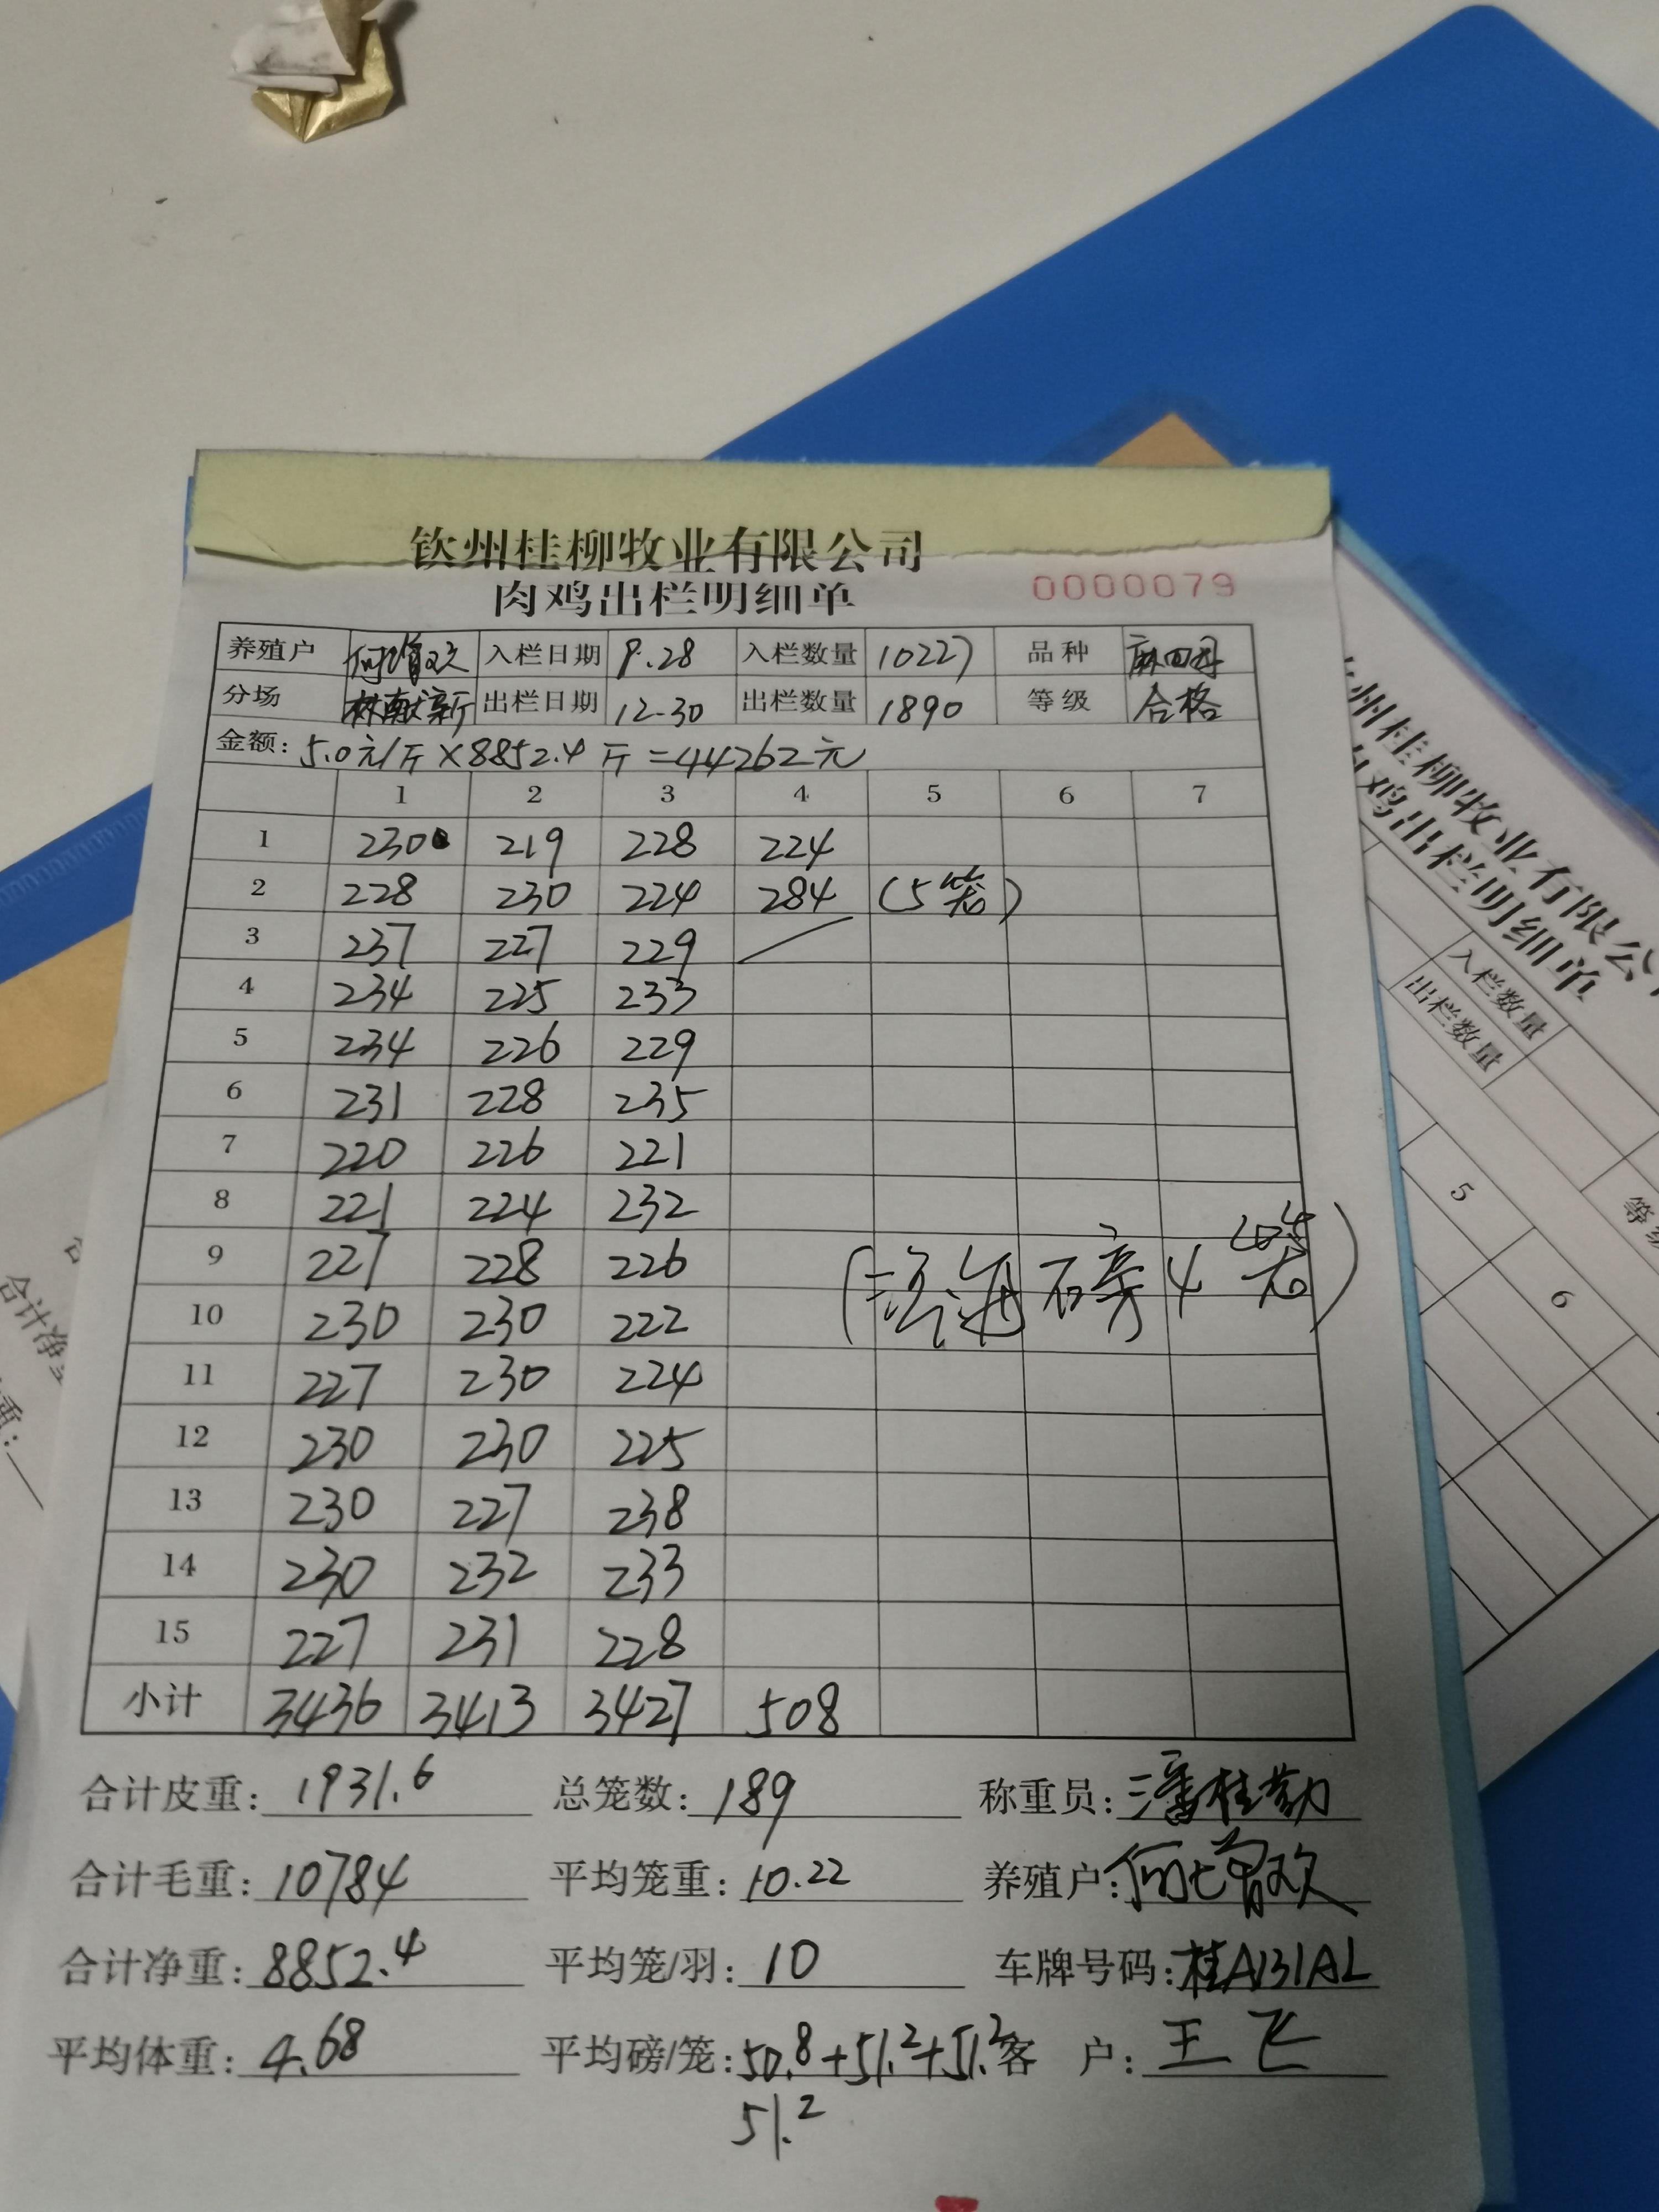 钦州桂柳牧业有限公司
肉鸡出栏明细单 0000079
养殖户 何增欢 入栏日期 9.28 入栏数量 10227 品种
分场 林献新 出栏日期 12-30 出栏数量 1890 等级 合格
金额: 5.0元/斤×8852.4斤=44262元
1 2 3 4 5 6 7
1 230 219 228 224
2 228 230 224 284 (5笼)
3 237 227 229
4 234 225 233
5 234 226 229
6 231 228 235
7 220 226 221
8 221 224 232
9 227 228 226
10 230 230 222
11 227 230 224
12 230 230 225
13 230 227 238
14 230 232 233
15 227 231 228
(注:每磅4笼)
小计 3436 3413 3427 508
合计皮重: 1931.6 总笼数: 189 称重员: 潘桂勤
合计毛重: 10784 平均笼重: 10.22 养殖户: 何增欢
合计净重: 8852.4 平均笼/羽: 10 车牌号码:
平均体重: 4.68 平均磅/笼: 50.8+51.2+51.2 客 户: 王飞
51.2
钦州桂柳牧业有限公
肉鸡出栏明细单
入栏数量
出栏数量
5
6
合计净
重: